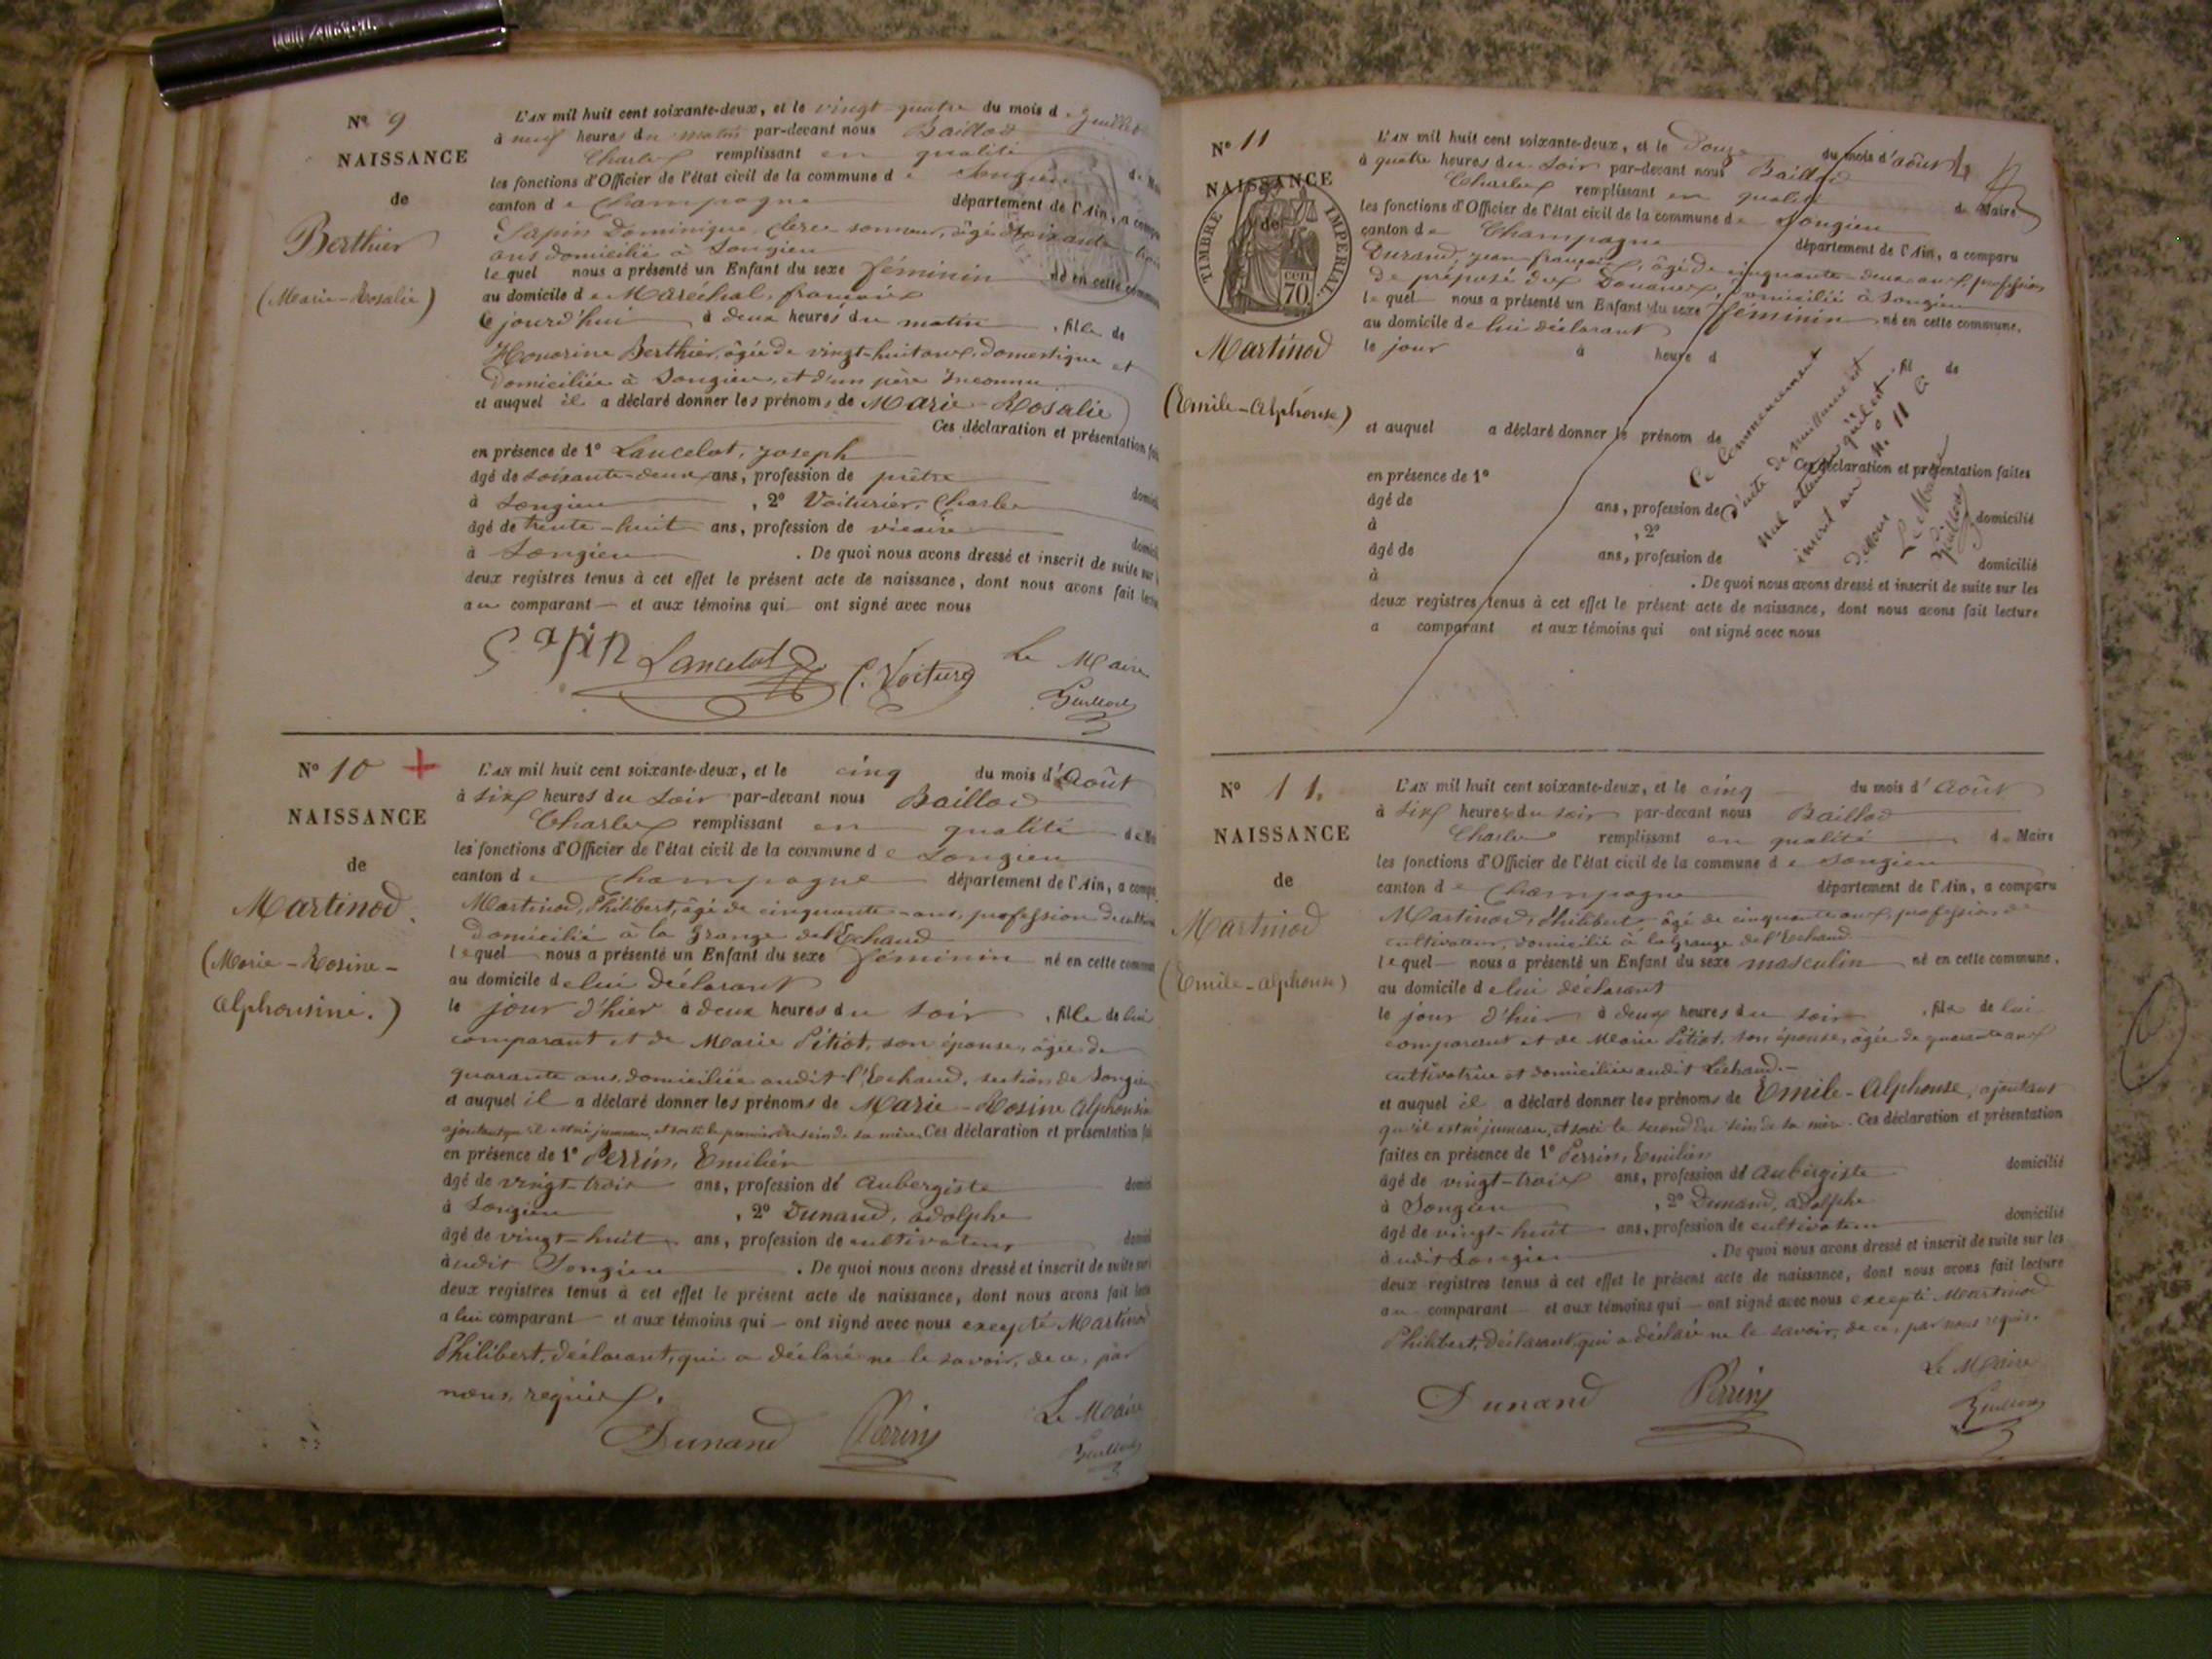 Nº 9
NAISSANCE
de
Berthier
(Marie-Rosalie)
L'AN mil huit cent soixante-deux, et le vingt quatre du mois de Juillet
à neuf heures du matin par-devant nous Baillod
Charles remplissant en qualité de
les fonctions d'Officier de l'état civil de la commune de Songieu
canton de Champagne département de l'Ain, a comp
Sapin Dominique, Clerc sonneur, âgé de soixante
ans domicilié à Songieu
lequel nous a présenté un Enfant du sexe féminin né en cette commune
au domicile de Maréchal, françois
ce jourd'hui à deux heures du matin, fille de
Honorine Berthier, âgée de vingt-huit ans, domestique et
domiciliée à Songieu, et d'un père Inconnu
et auquel il a déclaré donner les prénoms de Marie-Rosalie
Ces déclaration et présentation
en présence de 1º Lancelot, Joseph
âgé de soixante-deux ans, profession de prêtre
à Songieu, 2º Voiturier, Charles
âgé de trente-huit ans, profession de vicaire
à Songieu. De quoi nous avons dressé et inscrit de suite sur
deux registres tenus à cet effet le présent acte de naissance, dont nous avons fait
au comparant et aux témoins qui ont signé avec nous
Sapin Lancelot C. Voiturier Le Maire
Baillod
Nº 10 +
NAISSANCE
de
Martinod.
(Marie-Rosine-
Alphonsine.)
L'AN mil huit cent soixante-deux, et le cinq du mois d'Août
à six heures du soir par-devant nous Baillod
Charles remplissant en qualité de
les fonctions d'Officier de l'état civil de la commune de Songieu
canton de Champagne département de l'Ain, a comp
Martinod, Philibert, âgé de cinquante-ans, profession de
domicilié à la Grange de l'Echaud
lequel nous a présenté un Enfant du sexe féminin né en cette commun
au domicile de lui déclarant
le jour d'hier à deux heures du soir, fille de lui
comparant et de Marie Pétiot, son épouse, âgée de
quarante ans, domiciliée audit l'Echaud, section de Songieu
et auquel il a déclaré donner les prénoms de Marie-Rosine Alphonsine
ajoutant qu'il est né jumeau, et sorti le premier du sein de sa mère. Ces déclaration et présentation
en présence de 1º Perrin, Emilien
âgé de vingt-trois ans, profession de Aubergiste
à Songieu, 2º Dunand, adolphe
âgé de vingt-huit ans, profession de cultivateur
à udit Songieu. De quoi nous avons dressé et inscrit de suite sur
deux registres tenus à cet effet le présent acte de naissance, dont nous avons fait
a lui comparant et aux témoins qui ont signé avec nous excepté Martinod
Philibert, déclarant, qui a déclaré ne le savoir, de ce, par
nous, requis.
Dunand Perrin Le Maire
Baillod
Nº 11
NAISSANCE
de
TIMBRE IMPERIAL
cen
70
Martinod
(Emile-Alphonse)
L'AN mil huit cent soixante-deux, et le Douze du mois d'août
à quatre heures du soir par-devant nous Baillod
Charles remplissant en qualité de Maire
les fonctions d'Officier de l'état civil de la commune de Songieu
canton de Champagne département de l'Ain, a comparu
Durand, Jean françois, âgé de cinquante-deux ans, profession
de préposé des Douanes, domicilié à Songieu
lequel nous a présenté un Enfant du sexe féminin né en cette commune,
au domicile de lui déclarant
le jour à heure d, fil de
et auquel a déclaré donner le prénom de
Ces déclaration et présentation faites
en présence de 1º
âgé de ans, profession de domicilié
à, 2º
âgé de ans, profession de domicilié
à. De quoi nous avons dressé et inscrit de suite sur les
deux registres tenus à cet effet le présent acte de naissance, dont nous avons fait lecture
a comparant et aux témoins qui ont signé avec nous
Ce Commencement
d'acte de naissance est
nul attendu qu'il est
inscrit au Nº 11 Ci
dessous
Le Maire
Baillod
Nº 11.
NAISSANCE
de
Martinod
(Emile-Alphonse)
L'AN mil huit cent soixante-deux, et le cinq du mois d'Août
à six heures du soir par-devant nous Baillod
Charles remplissant en qualité de Maire
les fonctions d'Officier de l'état civil de la commune de Songieu
canton de Champagne département de l'Ain, a comparu
Martinod, Philibert, âgé de cinquante ans, profession de
cultivateur, domicilié à la Grange de l'Echaud
lequel nous a présenté un Enfant du sexe masculin né en cette commune,
au domicile de lui déclarant
le jour d'hier à deux heures du soir, fils de lui
comparant et de Marie Pétiot, son épouse, âgée de quarante ans
cultivatrice et domiciliée audit Lechaud.
et auquel il a déclaré donner les prénoms de Emile-Alphonse, ajoutant
qu'il est né jumeau, et sorti le second du sein de sa mère. Ces déclaration et présentation
faites en présence de 1º Perrin, Emilien
âgé de vingt-trois ans, profession de Aubergiste domicilié
à Songieu, 2º Dunand, adolphe
âgé de vingt-huit ans, profession de cultivateur domicilié
à udit Songieu. De quoi nous avons dressé et inscrit de suite sur les
deux registres tenus à cet effet le présent acte de naissance, dont nous avons fait lecture
au comparant et aux témoins qui ont signé avec nous excepté Martinod
Philibert, déclarant, qui a déclaré ne le savoir, de ce, par nous requis.
Dunand Perrin Le Maire
Baillod